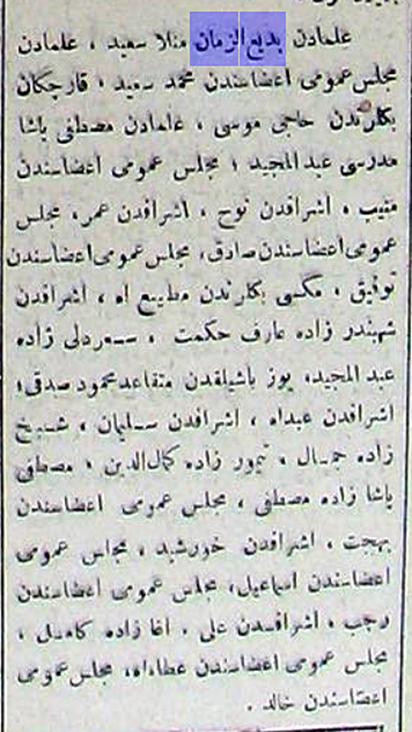 علمادن بدیع الزمان منلا سعید ، علمادن
مجلس عمومی اعضاسندن محمد سعید ، قارچکان
بكلرندن حاجی موسی ، علمادن مصطفی پاشا
مدرسی عبدالمجید ، مجلس عمومی اعضاسندن
منیب ، اشرافدن نوح ، اشرافدن عمر ، مجلس
عمومی اعضاسندن صادق ، مجلس عمومی اعضاسندن
توفیق ، مکسی بکلرندن مطیع الله ، اشرافدن
شهبندر زاده عارف حکمت ، سعردلی زاده
عبدالمجید ، یوز باشیلقدن متقاعد محمود صدقی ،
اشرافدن عبدالله ، اشرافدن سلیمان ، شیخ
زاده جمال ، تیمور زاده کمال الدین ، مصطفی
پاشا زاده مصطفی ، مجلس عمومی اعضاسندن
بهجت ، اشرافدن خورشید ، مجلس عمومی
اعضاسندن اسماعیل ، مجلس عمومی اعضاسندن
رجب ، اشرافدن علی ، اغا زاده کامل ،
مجلس عمومی اعضاسندن عطاءالله ، مجلس عمومی
اعضاسندن خالد .